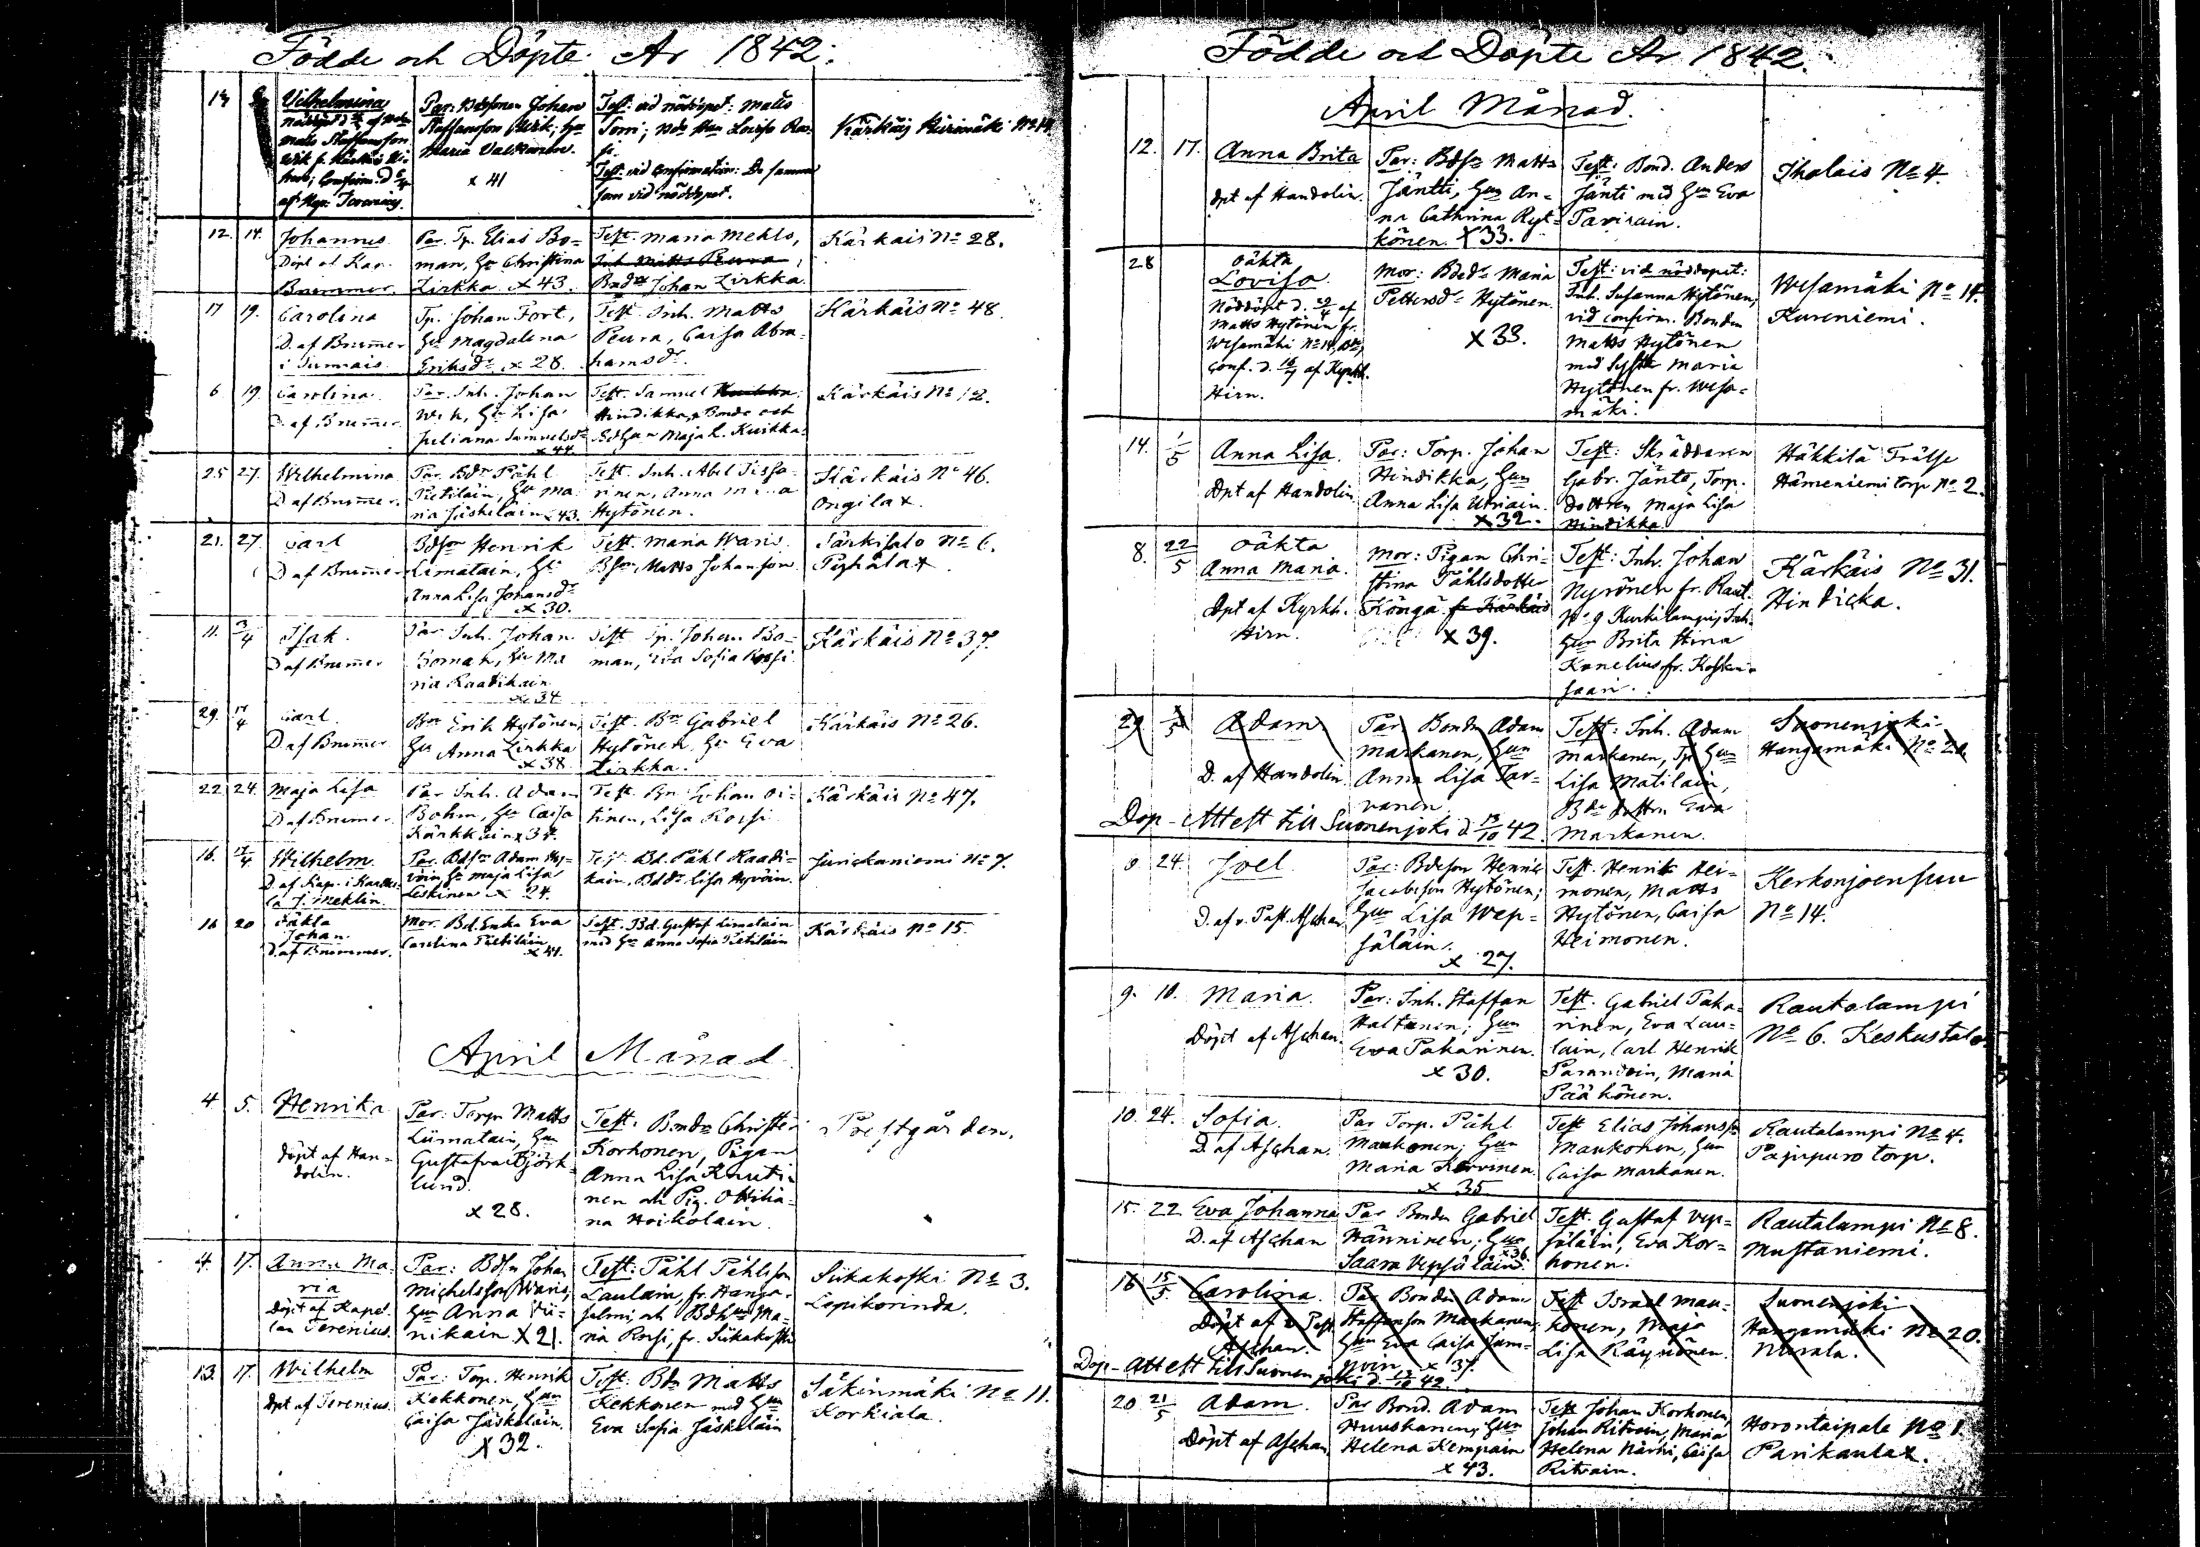 Födde och Döpte År 1842.
Vilhelmina
Par: Bdesonen Johan
Staffansson Wik; Hu
Maria Valkonen.
x 41
Test: vid nöddopet: Matts
Test: vid Confirmation: De samma
som vid nöddopet.
12. 14. Johannes
Döpt af Kap.
Brummer.
Par. Tp. Elias Bo=
man, Hu Christina
Zirkka. x 43.
Test. Maria Mehlo,
Inh. Matts Peura,
Johan Zirkka.
Kärkäis No 28.
17 19. Carolina
D. af Brummer
i Sumiais.
Tp. Johan Fort,
Hu Magdalena
Eriksdr x 28.
Test. Inh. Matts
Peura, Caisa Abra=
hamsdr.
Kärkäis No 48.
6 19. Carolina.
D. af Brummer.
Par. Inh. Johan
Wik, Hu Lisa
Juliana Samuelsdr
x 44
Test. Samuel
Hindikka, Bonde och
Maja L. Kuikka.
Kärkäis No 12.
25 27. Wilhelmina
D af Brummer.
Par. Bdr Påhl
Pietiläin, Hu Ma
ria Jäskeläin x 43.
Test. Inh. Abel Tissa
rinen, Anna
Hytönen.
Kärkäis No 46.
Ongila x.
21. 27. Carl
D af Brummer
Henrik
Limatain, Hu
Anna Lisa Johansdr
x 30.
Test. Maria Waris
Matts Johansson.
Särkisalo No 6.
11. 3/4 Isak.
D af Brummer
Par Inh. Johan
Boman, Hu Ma
ria Raatikain
x 34
Test Tp. Johan Bo=
man, Eva Sofia Rossi
Kärkäis No 37.
29. 17/4 Carl.
D. af Brummer
Erik Hytönen,
Hu Anna Zirkka
x 38
Test. Gabriel
Hytönen, Hu Eva
Zirkka.
Kärkäis No 26.
22 24. Maja Lisa
D af Brummer
Par Inh. Adam
Bohm, Hu Caisa
Kärkkäin x 37.
Test. Johan Oi=
tinen, Lisa Rossi
Kärkäis No 47.
16. 17/4 Wilhelm.
Par. Adam Hy=
vöin Hu Maja Lisa
Leskinen x 24.
Test. Bd. Påhl Raadi=
kain, Lisa Hyvöin.
No 7.
16 20 oäkta
Johan.
D. af Brummer.
Mor. Bd. Enka Eva
Carolina Pietiläin
x 41.
Test. Bd. Gustaf Limatain
med Hu Anna Sofia Pietiläin
Kärkäis No 15.
April Månad
4 5. Henrika
Döpt af Han=
dolin.
Par: Torpr Matts
Liimatain, Hu
Gustafva Björk=
lund.
x 28.
Test: Christer
Korhonen, Pigan
Anna Lisa Knuti=
nen och Pig. Ottilia=
na Hoikolain.
Prestgården.
4. 17. Anna Ma
ria
Döpt af Kapel=
lan Terenius.
Par: Johan
Michelsson Waris,
Hun Anna Pii=
nikain x 21.
Test: Påhl Påhlsson
Laulain, fr. Hanga=
salmi och Ma=
ria Rossi, fr. Siikakoski
Siikakoski No 3.
Lepikorinda.
13. 17. Wilhelm
Dpt af Terenius.
Par: Torp. Henrik
Kekkonen, Hun
Caisa Jäskeläin.
x 32.
Test: Matts
Kekkonen med Hun
Eva Sofia Jäskeläin
Säkinmäki No 11.
Korkiala.
Födde och Döpte År 1842.
April Månad.
12. 17. Anna Brita
Dpt af Handolin.
Par: Matts
Jäntti, Hun An=
na Cathrina Ryt=
könen x 33.
Test: Bond. Anders
Jänti med Hun Eva
Tavirain.
Ihalais No 4.
28 oäkta
Lovisa
Nöddöpt d. 29/4 af
Matts Hytönen fr.
Wesamäki No 14,
Conf. d. af Kyrkh.
Hirn.
Mor: Maria
Pettersdr Hytönen.
x 33.
Test: vid nöddopet:
Inh. Susanna Hytönen,
vid confirm. Bonden
Matts Hytönen
med Syster Maria
Hytönen fr. Wesa=
mäki.
Wesamäki No 14.
Kureniemi.
14. 1/5 Anna Lisa.
Dpt af Handolin
Par: Torp. Johan
Hindikka, Hun
Anna Lisa Utriain.
x 32.
Test: Skräddaren
Gabr. Jäntö, Torp.
dottren Maja Lisa
Hindikka
Häkkilä Frälse
Hämeniemi torp No 2.
8. 22/5 oäkta
Anna Maria.
Dpt af Kyrkh.
Hirn.
Mor: Pigan Chri=
stina Påhlsdotter
Köngä fr Kärkäis
x 39.
Test: Inh. Johan
Nyrönen fr. Raut.
No 9 Kurkilampi, Inh.
Hun Brita Stina
Konelius fr. Kosken=
saari.
Kärkäis No 31.
Hindicka.
29 Adam
D. af Handolin.
Par Bonden Adam
Markanen, Hun
Anna Lisa Tar=
vanen
Test: Inh. Adam
Markanen, Tp. Hun
Lisa Matilain,
Bde dottren Eva
Markanen.
Suonenjoki
Hangamäki No 20
Dop-Attest till Suonenjoki d 13/10 42.
9 24. Joel
D. af v. Past. Aschan
Par: Bdeson Henrik
Jacobsson Hytönen;
Hun Lisa Wep=
säläin.
x 27.
Test. Henrik Hei=
monen, Matts
Hytönen, Caisa
Heimonen.
Kerkonjoensuu
No 14.
9. 10. Maria.
Döpt af Aschan.
Par: Inh. Staffan
Haltunen; Hun
Eva Pakarinen.
x 30.
Test. Gabriel Paka=
rinen, Eva Lau=
lain, Carl Henrik
Parandain, Maria
Pääkönen.
Rautalampi
No 6. Keskustalo
10. 24. Sofia.
D. af Aschan.
Par Torp. Påhl
Maukonen; Hun
Maria Korvinen
x 35
Test Elias Johanss.
Maukonen, Hun
Caisa Markanen.
Rautalampi No 4.
Pajupuro torp.
15. 22 Eva Johanna
D. af Aschan
Par Bonden Gabriel
Hänninen; Hun
x 36
Saara Vepsäläin.
Test. Gustaf Vep=
säläin, Eva Kor=
honen.
Rautalampi No 8.
Mustaniemi.
16 15/5 Carolina.
Döpt af v Past.
Aschan.
Par Bonden Adam
Staffansson Markanen,
Hun Eva Caisa Jäm=
x 37.
Test Israel Mau=
konen, Maja
Lisa Räynönen.
Suonenjoki
Hangamäki No 20.
Dop-Attest till Suonenjoki d. 13/10 42.
20 21/5 Adam.
Döpt af Aschan
Par Bond. Adam
Huuskanen, Hun
Helena Kempain
x 43.
Test Johan Korhonen,
Johan Ritvain, Maria
Helena Närhi, Caisa
Ritvain.
Horontaipale No 1.
Parikaulax.